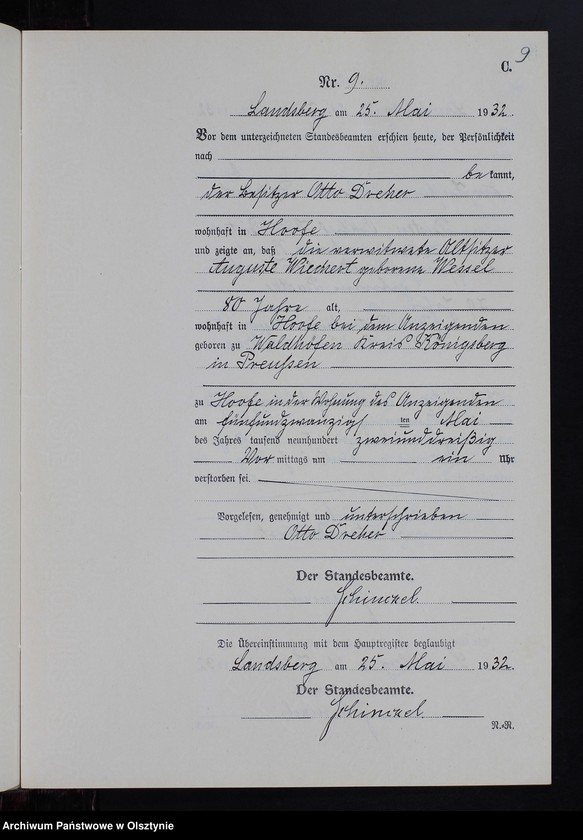 9
C.
Nr. 9.
Landsberg am 25. Mai 1932.
Vor dem unterzeichneten Standesbeamten erschien heute, der Persönlichkeit
nach
be kannt,
der Besitzer Otto Dreher
wohnhaft in Hoofe
und zeigte an, daß die verwitwete Altsitzer
Auguste Wiechert geborene Wessel
80 Jahre alt,
wohnhaft in Hoofe bei dem Anzeigenden
geboren zu Waldhöfen Kreis Königsberg
in Preußen
zu Hoofe in der Wohnung des Anzeigenden
am fünfundzwanzigs ten Mai
des Jahres tausend neunhundert zweiunddreißig
Vor mittags um ein Uhr
verstorben sei.
Vorgelesen, genehmigt und unterschrieben
Otto Dreher
Der Standesbeamte.
Schinckel.
Die Übereinstimmung mit dem Hauptregister beglaubigt
Landsberg am 25. Mai 1932.
Der Standesbeamte.
Schinckel.
N.-R.
Archiwum Państwowe w Olsztynie